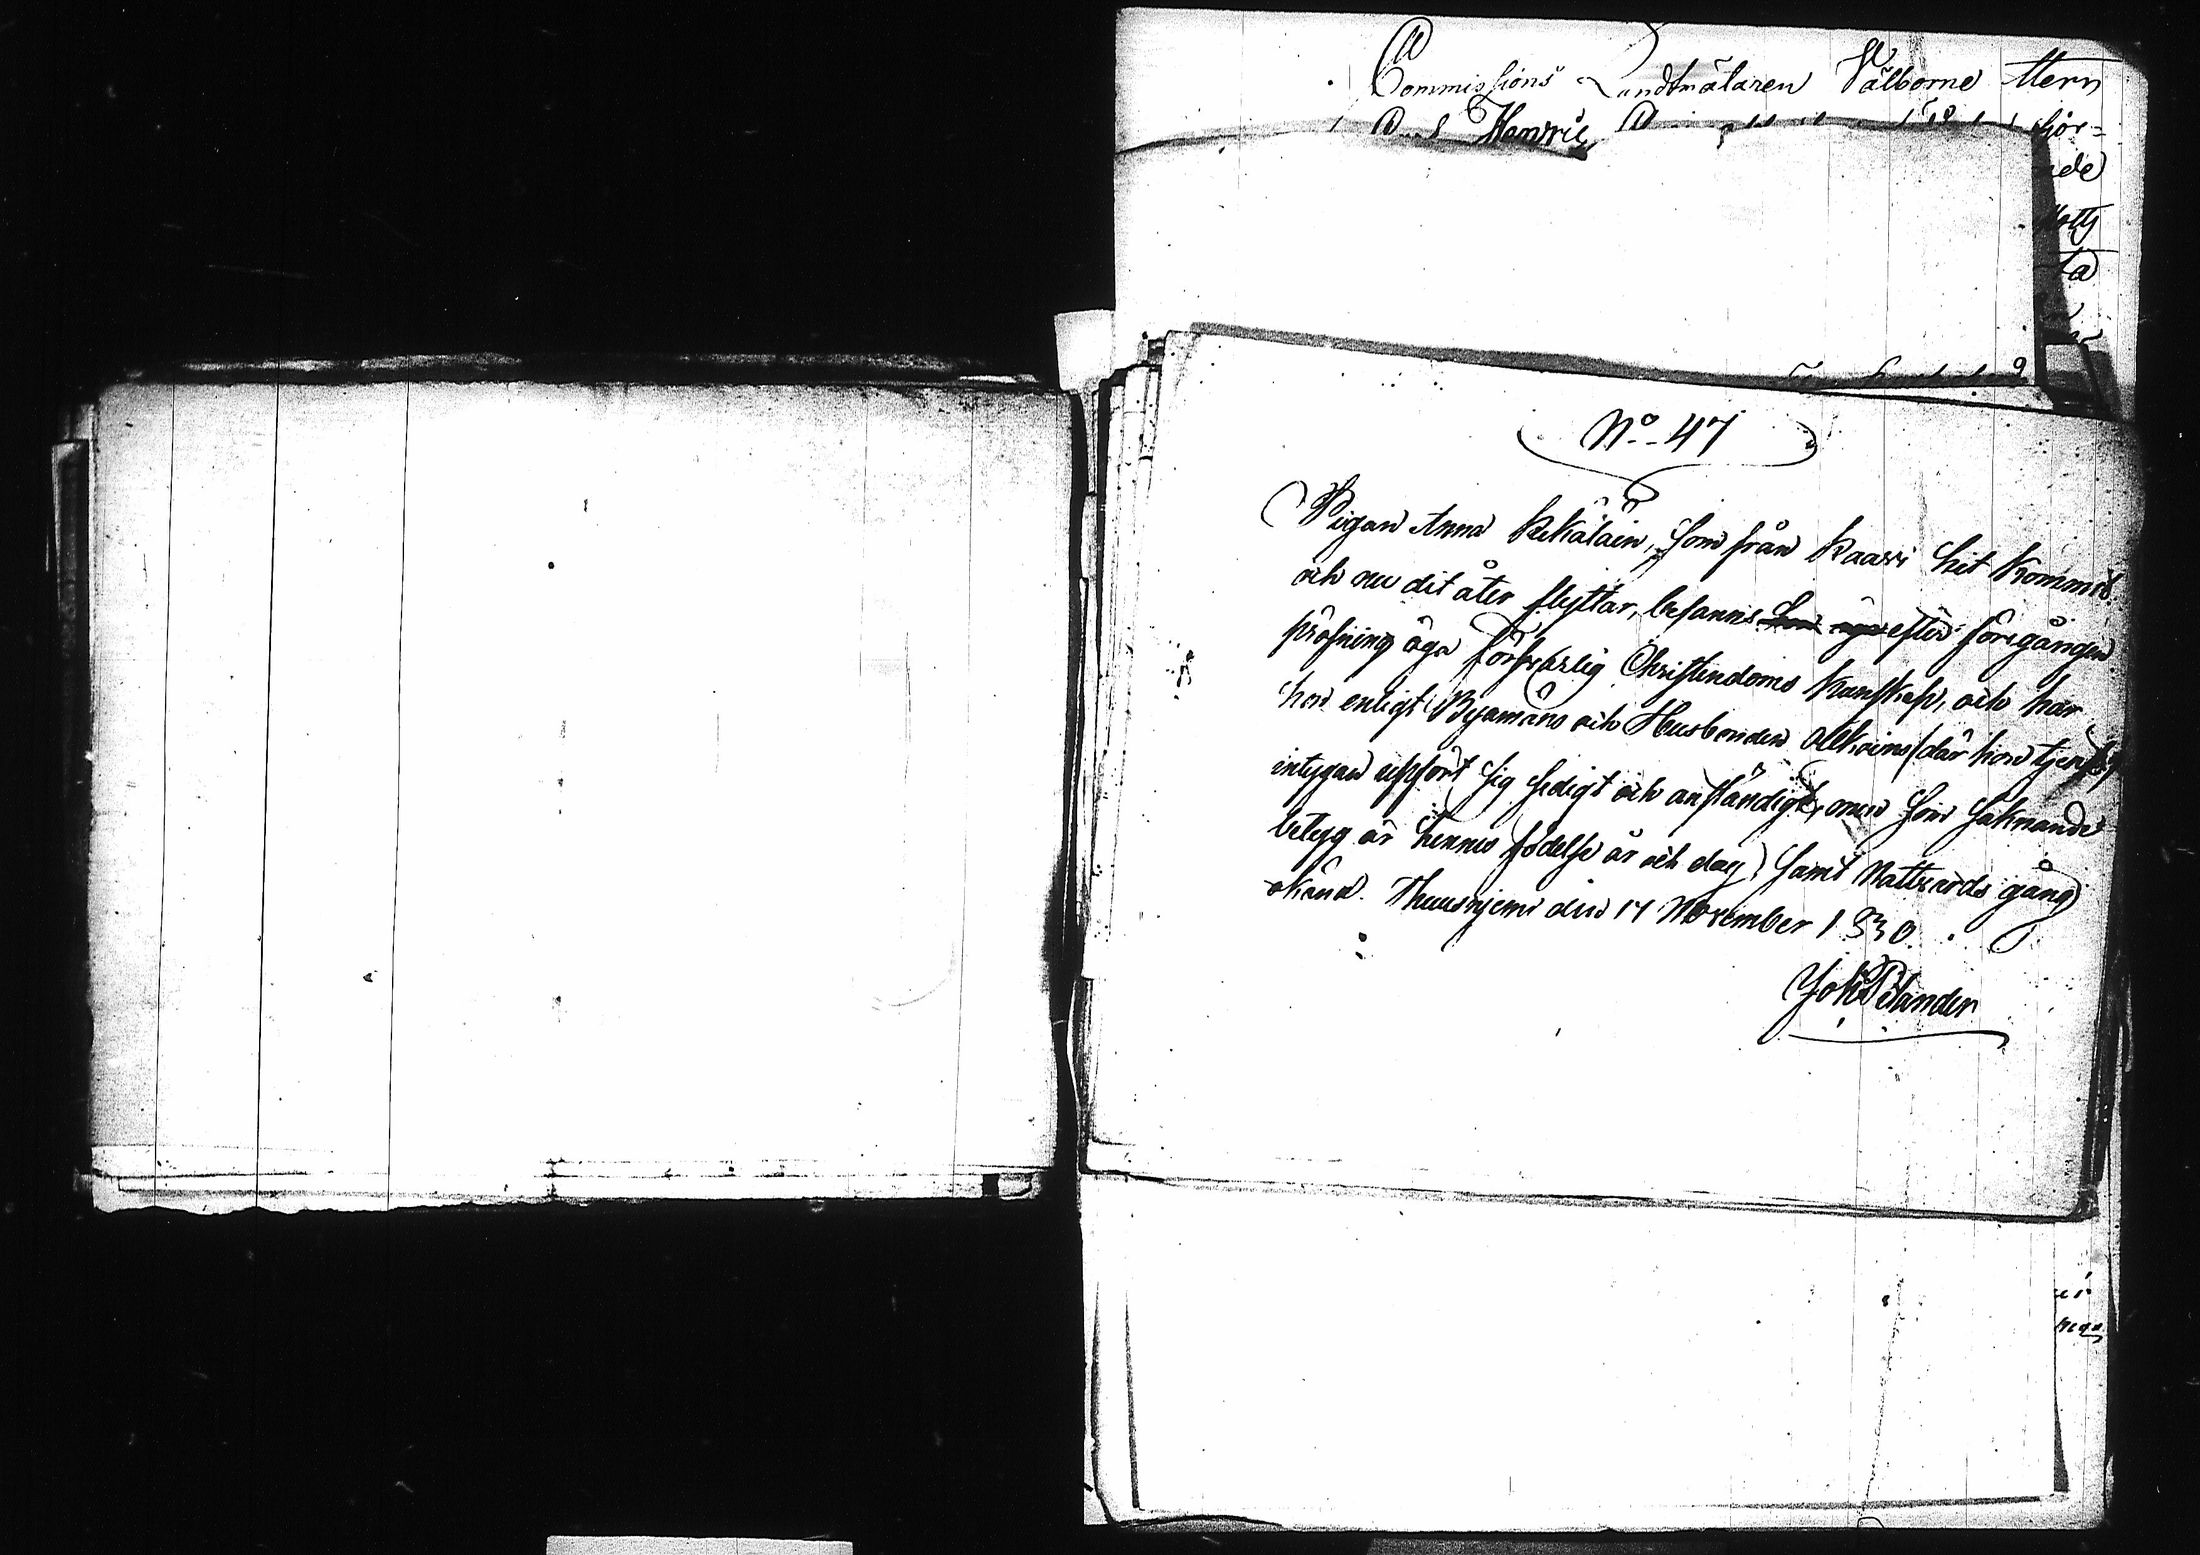 Commissions Landtmätaren Wälborne Herr
Henric
hör=
nde
ta
No. 47
Pigan Anna Kekäläin, som från Kaavi hit kommit
och nu dit åter flyttar, befanns efter föregången
pröfning äga försvarlig Christendoms kunskap, och har
hon enligt Byamäns och Husbonden Olkoins (där hon tjent)
intygan uppfört sig sedigt och anständigt, men som saknande
betyg är hennes födelse år och dag, samt Nattvards gång
okänd. Thuusnjemi den 17 November 1830.
Joh Pelander